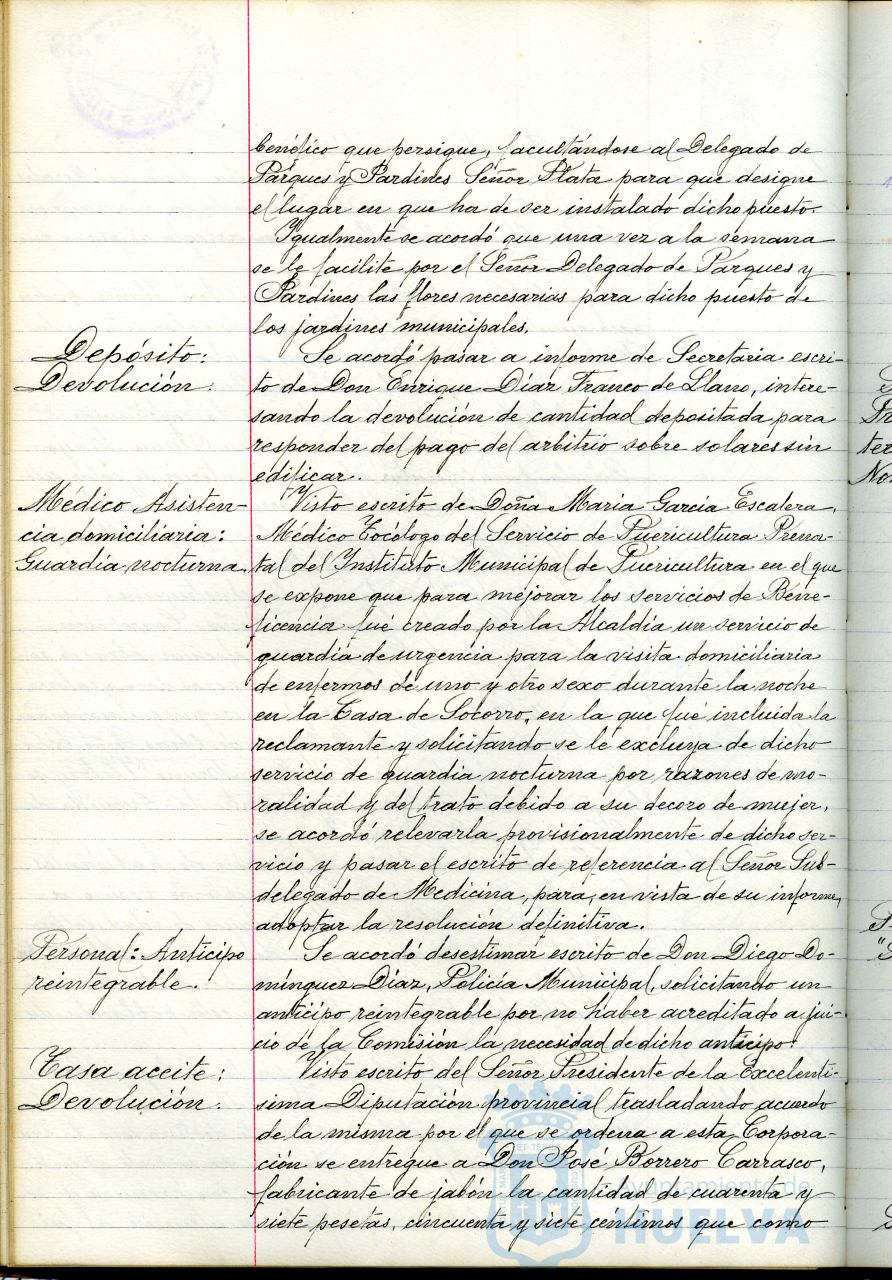 benéfico que persigue, facultándose al Delegado de
Parques y Jardines Señor Plata para que designe
el lugar en que ha de ser instalado dicho puesto.
Igualmente se acordó que una vez a la semana
se le facilite por el Señor Delegado de Parques y
Jardines las flores necesarias para dicho puesto de
los jardines municipales.
Depósito:
Devolución.
Se acordó pasar a informe de Secretaria escri-
to de Don Enrique Díaz Franco de Llano, intere-
sando la devolución de cantidad depositada para
responder del pago del arbitrio sobre solares sin
edificar.
Médico Asisten-
cia domiciliaria:
Guardia nocturna.
Visto escrito de Doña Maria García Escalera,
Médico Tocólogo del Servicio de Puericultura Prena-
tal del Instituto Municipal de Puericultura en el que
se expone que para mejorar los servicios de Bene-
ficencia fué creado por la Alcaldía un servicio de
guardia de urgencia para la visita domiciliaria
de enfermos de uno y otro sexo durante la noche
en la Casa de Socorro, en la que fué incluida la
reclamante y solicitando se le excluya de dicho
servicio de guardia nocturna por razones de mo-
ralidad y del trato debido a su decoro de mujer,
se acordó relevarla provisionalmente de dicho ser-
vicio y pasar el escrito de referencia al Señor Sub-
delegado de Medicina, para, en vista de su informe,
adoptar la resolución definitiva.
Personal: Anticipo
reintegrable.
Se acordó desestimar escrito de Don Diego Do-
mínguez Díaz, Policía Municipal, solicitando un
anticipo reintegrable por no haber acreditado a jui-
cio de la Comisión la necesidad de dicho anticipo.
Tasa aceite:
Devolución.
Visto escrito del Señor Presidente de la Excelentí-
sima Diputación provincial trasladando acuerdo
de la misma por el que se ordena a esta Corpora-
ción se entregue a Don José Borrero Carrasco,
fabricante de jabón la cantidad de cuarenta y
siete pesetas, cincuenta y siete céntimos que como
Ayuntamiento de
HUELVA